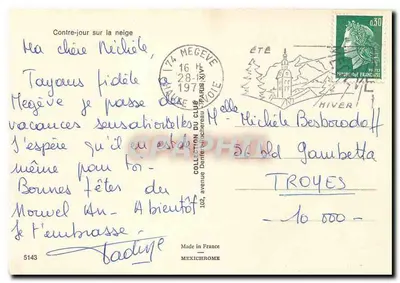 Contre-jour sur la neige
Ma chère Michèle,
Toujours fidèle à
Megève je passe des
vacances sensationnelles
J'espère qu'il en est de
même pour toi -
Bonnes fêtes du
Nouvel An - A bientôt
Je t'embrasse -
5143
Made in France
MEXICHROME
COLLECTION DU CLUB
102, avenue Denfert-Rochereau - PARIS XIVe
74 MEGEVE
16 H
28-12
197
HTE SAVOIE
ÉTÉ
HIVER
0,30
REPUBLIQUE FRANCAISE
Melle Michèle Besborodoff
56 Bld Gambetta
TROYES
- 10 000 -